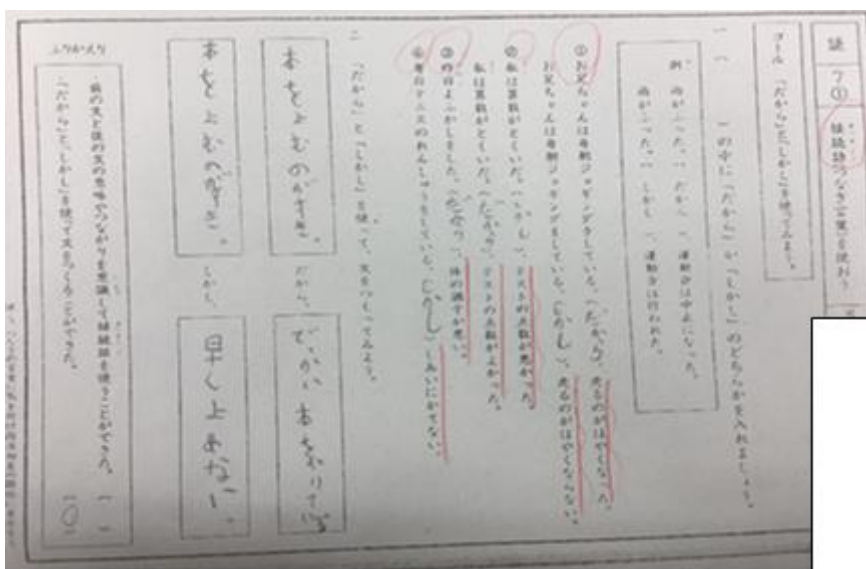 読
7
①
接続語(つなぎ言葉)を使おう
ゴール 「だから」と「しかし」を使ってみよう。
一 ( )の中に「だから」か「しかし」のどちらかを入れましょう。
例 雨がふった。( だから )、運動会は中止になった。
雨がふった。( しかし )、運動会は行われた。
① お兄ちゃんは毎朝ジョギングをしている。(だから)、走るのがはやくなった。
お兄ちゃんは毎朝ジョギングをしている。(しかし)、走るのがはやくならない。
② 私は算数がとくいだ。(しかし)、テストの点数が悪かった。
私は算数がとくいだ。(だから)、テストの点数がよかった。
③ 昨日よふかしをした。(だから)、体の調子が悪い。
④ 毎日テニスのれんしゅうをしている。(しかし)しあいにかてない。
二 「だから」と「しかし」を使って、文をつくってみよう。
本をよむのがすき。
だから、
でかい本をかりている
本をよむのがすき。
しかし、
早くよめない。
ふりかえり
・前の文と後の文の意味やつながりを意識して接続語を使うことができた。( )
・「だから」と「しかし」を使って文をつくることができた。(○)